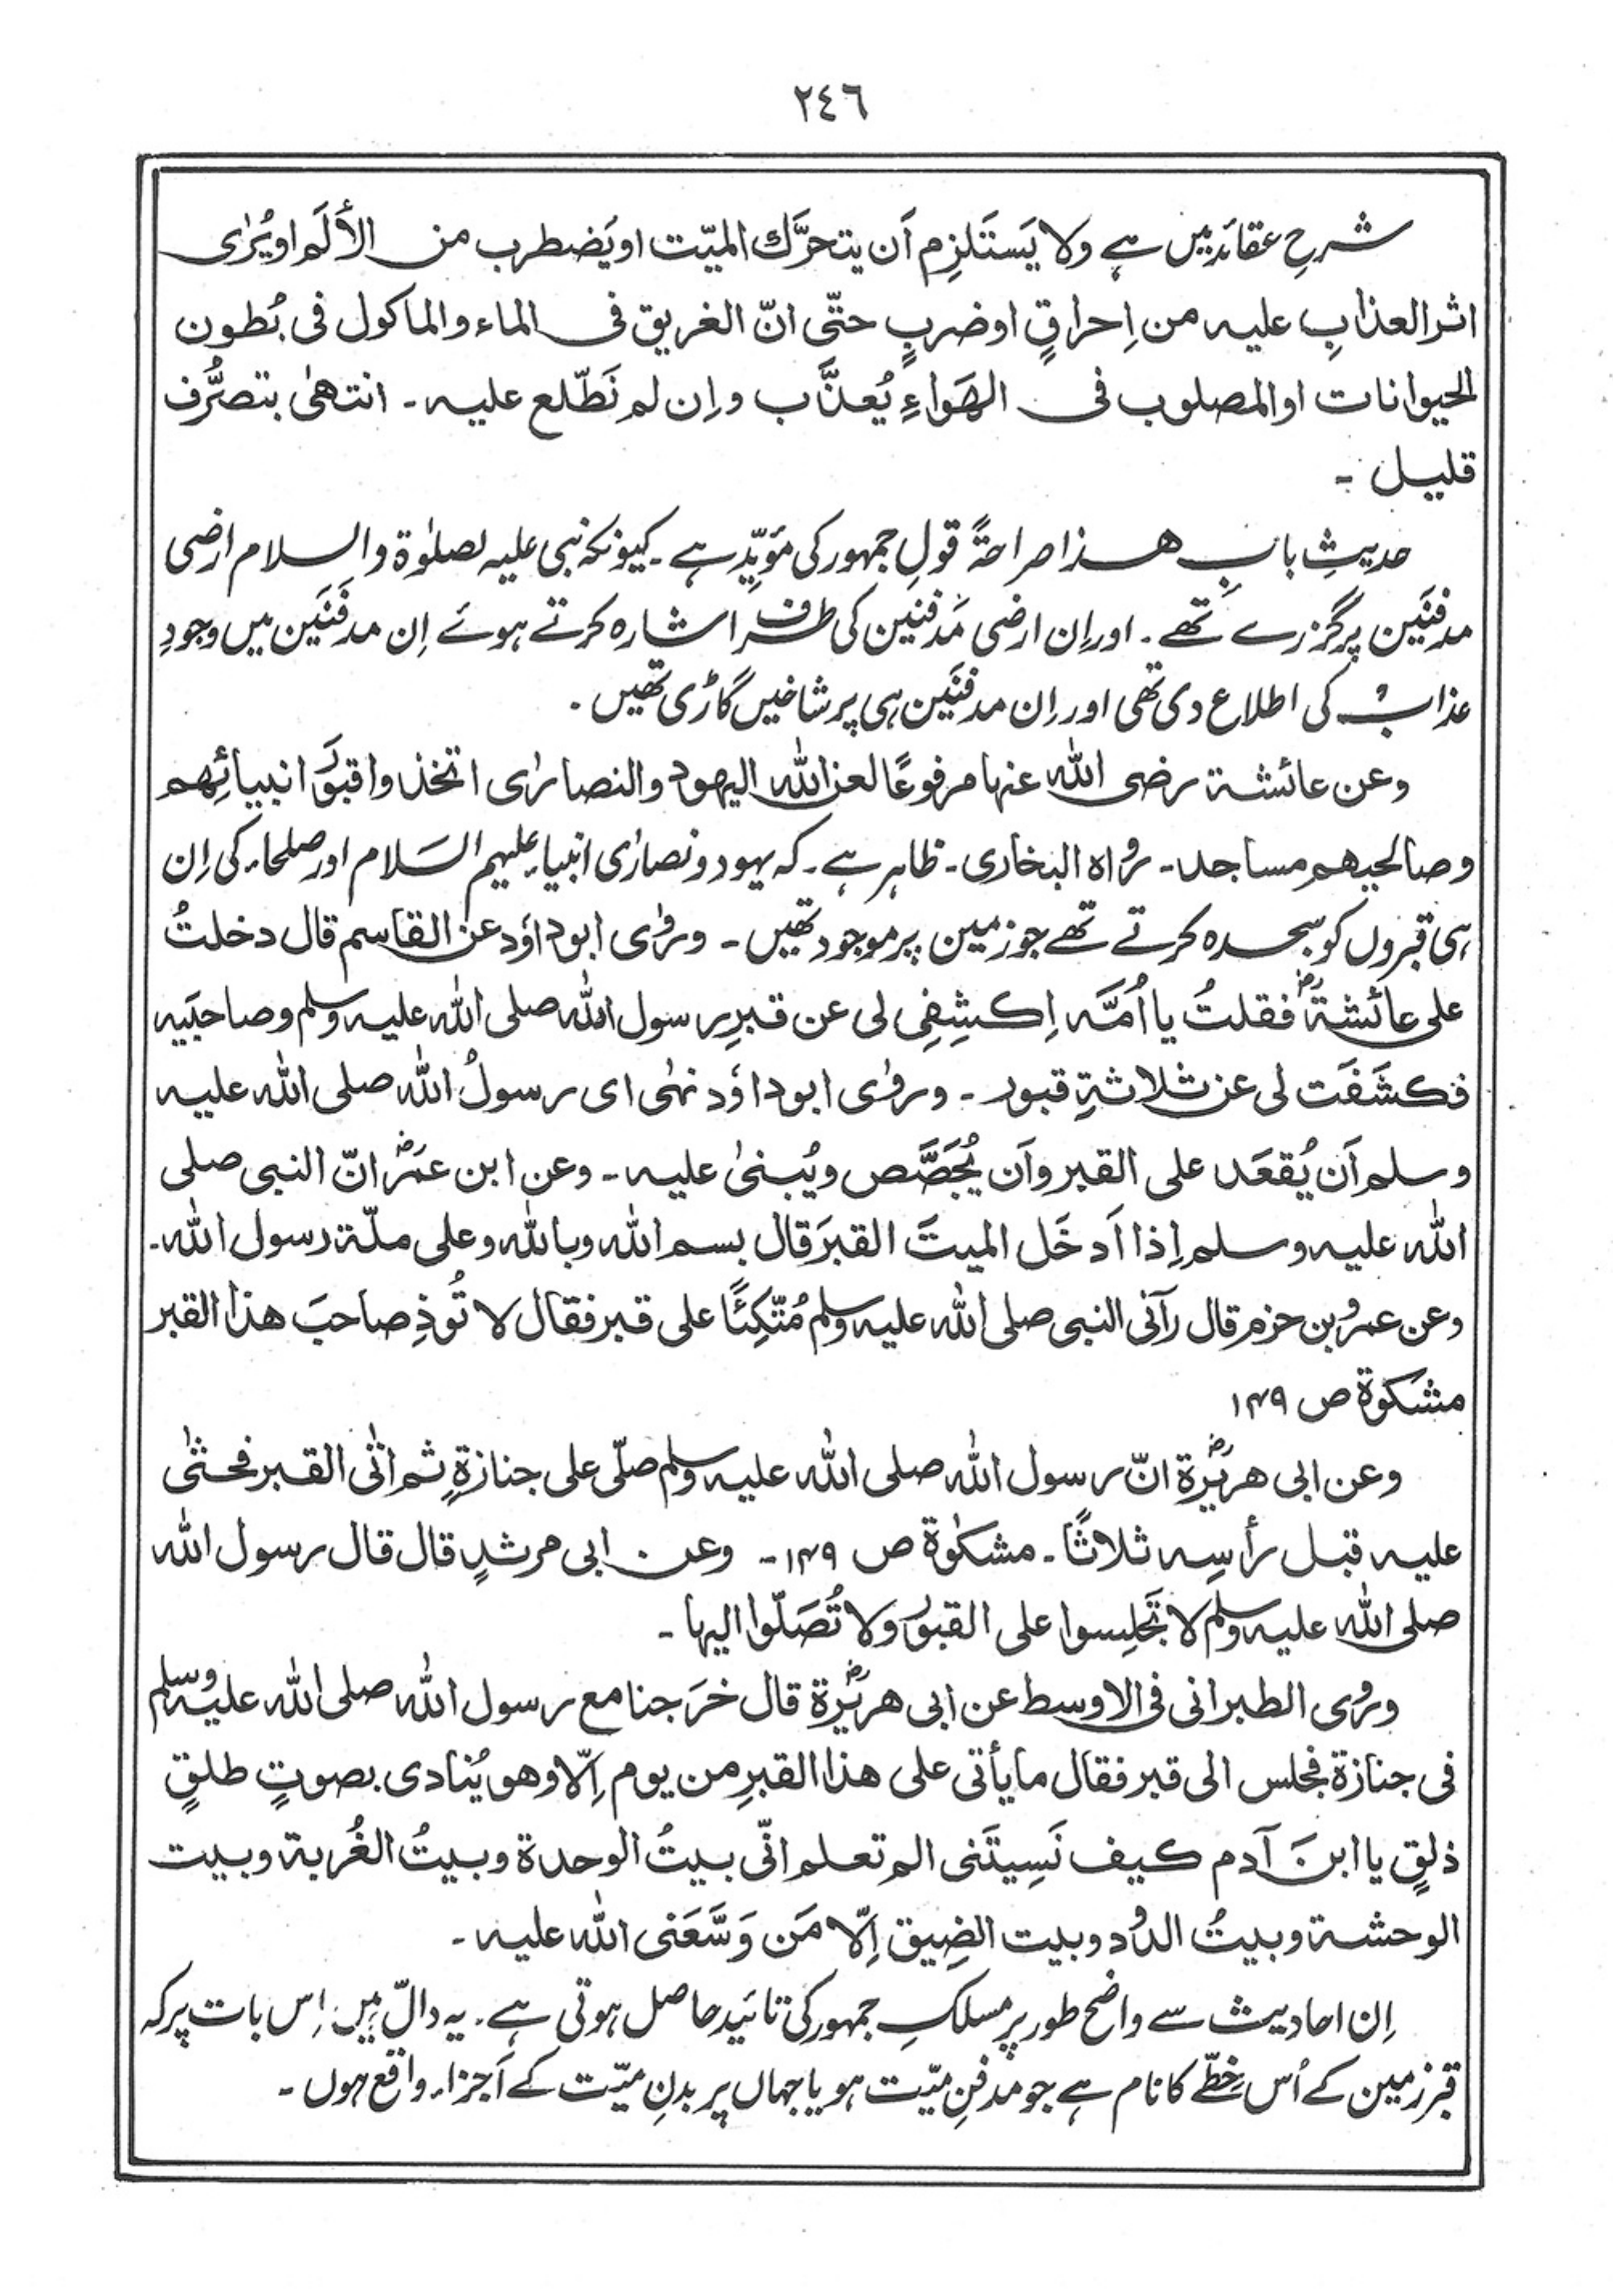 ٢٤٦
شرحِ عقائد میں ہے ولا یَستَلزِم أن یتحرَّك المیّت او یَضطرب من الأَلَم او یُرٰی
اثر العذابِ علیہ من اِحراقٍ او ضربٍ حتّٰی انّ الغریق فی الماء والماکول فی بُطون
الحیوانات او المصلوب فی الھَواءِ یُعذَّب و اِن لم نَطّلع علیہ۔ انتھیٰ بتصرُّف
قلیل ۔
حدیثِ بابِ ھذا صراحةً قولِ جمہور کی مؤیّد ہے۔ کیونکہ نبی علیہ لصلوٰة والسلام ارضی
مدفنَین پر گزرے تھے۔ اور اِن ارضی مَدفنین کی طرف اشارہ کرتے ہوئے اِن مدفنَین میں وجودِ
عذاب کی اطلاع دی تھی اور اِن مدفنَین ہی پر شاخیں گاڑی تھیں ۔
وعن عائشة رضی اللّٰہ عنہا مرفوعًا لعن اللّٰہ الیھود والنصارٰی اتخذوا قبورَ انبیائِھم
وصالحیھم مساجد۔ رواہ البخاری۔ ظاہر ہے۔ کہ یہود و نصارٰی انبیاء علیہم السَلام اور صلحاء کی اِن
ہی قبروں کو سجدہ کرتے تھے جو زمین پر موجود تھیں ۔ ورٰوی ابوداؤد عن القاسم قال دخلتُ
علی عائشةؓ فقلتُ یا اُمَّہ اِکشِفِی لی عن قبرِ رسول اللّٰہ صلی اللّٰہ علیہ وسلم وصاحبَیہ
فکشَفَت لی عن ثلاثةِ قبور ۔ ورٰوی ابوداؤد نہٰی ای رسولُ اللّٰہ صلی اللّٰہ علیہ
وسلم أن یُقعَد علی القبر وأن یُجَصَّص ویُبنیٰ علیہ ۔ وعن ابن عمرؓ انّ النبی صلی
اللّٰہ علیہ وسلم اِذا أدخَل المیتَ القبرَ قال بسم اللّٰہ وباللّٰہ وعلی ملّة رسول اللّٰہ۔
وعن عمرو بن حزم قال رآنی النبی صلی اللّٰہ علیہ وسلم مُتّکِئًا علی قبر فقال لا تُوذِ صاحبَ ھذا القبر
مشکوة ص ۱۴۹
وعن ابی ھریرةؓ انّ رسول اللّٰہ صلی اللّٰہ علیہ وسلم صلّی علی جنازةٍ ثم اتٰی القبر فحثٰی
علیہ قبل رأسِہ ثلاثًا ۔ مشکوٰة ص ۱۴۹۔ وعن ابی مرثدٍ قال قال رسول اللّٰہ
صلی اللّٰہ علیہ وسلم لا تَجلِسوا علی القبورِ ولا تُصَلّوا الیہا ۔
ورٰوی الطبرانی فی الاوسط عن ابی ھریرةؓ قال خرَجنا مع رسول اللّٰہ صلی اللّٰہ علیہ وسلم
فی جنازة فجلس الی قبر فقال ما یأتی علی ھذا القبرِ من یوم اِلّا وھو یُنادی بصوتٍ طلقٍ
ذلقٍ یا ابنَ آدم کیف نَسِیتَنی الم تعلم انّی بیتُ الوحدة وبیتُ الغُربة وبیت
الوحشة وبیتُ الدُود وبیت الضِیق اِلّا مَن وَسَّعَنی اللّٰہ علیہ ۔
اِن احادیث سے واضح طور پر مسلکِ جمہور کی تائید حاصل ہوتی ہے۔ یہ دالّ ہیں اِس بات پر کہ
قبر زمین کے اُس خطّے کا نام ہے جو مدفنِ میّت ہو یا جہاں پر بدنِ میّت کے اَجزاء واقع ہوں ۔